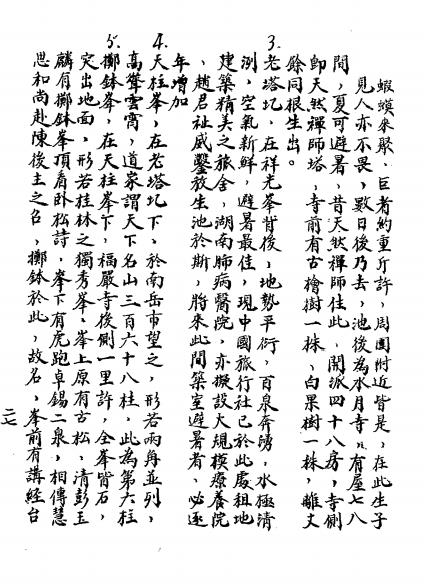 蝦蟆來聚、巨者約重斤許，周圍附近皆是，在此生子
見人亦不畏，數日後乃去，池後為水月寺，有屋七八
間，夏可避暑，昔天然禪師住此，開派四十八房，寺側
卽天然禪師塔，寺前有古檜樹一株，白果樹一株，離丈
餘同根生出。
3.老塔圪，在祥光峯背後，地勢平衍，百泉奔湧，水極清
洌，空氣新鮮，避暑最佳，現中國旅行社已於此處租地
建築精美之旅舍，湖南肺病醫院，亦擬設大規模療養院
、趙君祉威鑿放生池於斯，將來此間築室避暑者、必逐
年增加
4.天柱峯，在老塔圪下，於南岳市望之，形若兩舟並列，
高聳雲霄，道家謂天下名山三百六十八柱，此為第六柱
5.擲鉢峯，在天柱峯下，福嚴寺後側一里許，全峯皆石，
突出地面，形若桂林之獨秀峯、峯上原有古松、清彭玉
麟有擲鉢峯頂看卧松詩，峯下有虎跑卓錫二泉，相傳慧
思和尚赴陳後主之召，擲鉢於此，故名，峯前有講經台
二七